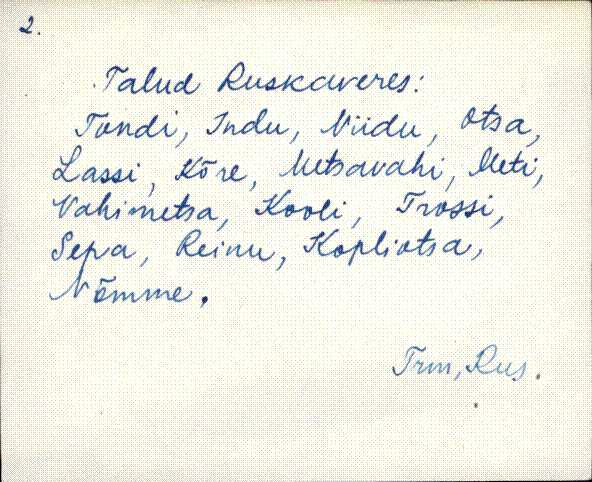 2.
Talud Ruskaveres:
Tondi, Indu, Niidu, Otsa,
Lassi, Kõre, Metsavahi, Meti,
Vahimetsa, Kooli, Trossi,
Sepa, Reinu, Kopliotsa,
Nõmme.
Trm, Rus.